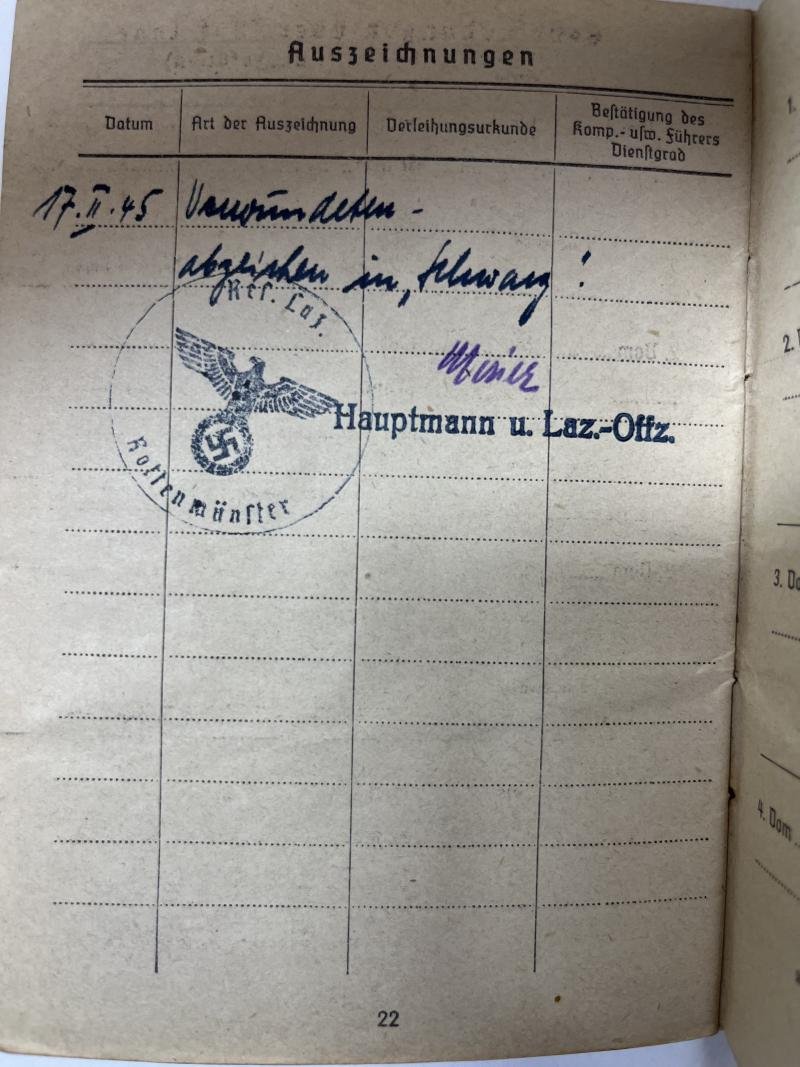 Auszeichnungen
Datum
Art der Auszeichnung
Verleihungsurkunde
Bestätigung des
Komp.- usw. Führers
Dienstgrad
17.II.45 Verwundeten-
abzeichen in „Schwarz"!
Res. Laz.
Rottenmünster
Hauptmann u. Laz.-Offz.
22
1.
2.
3. Do
4. Dom